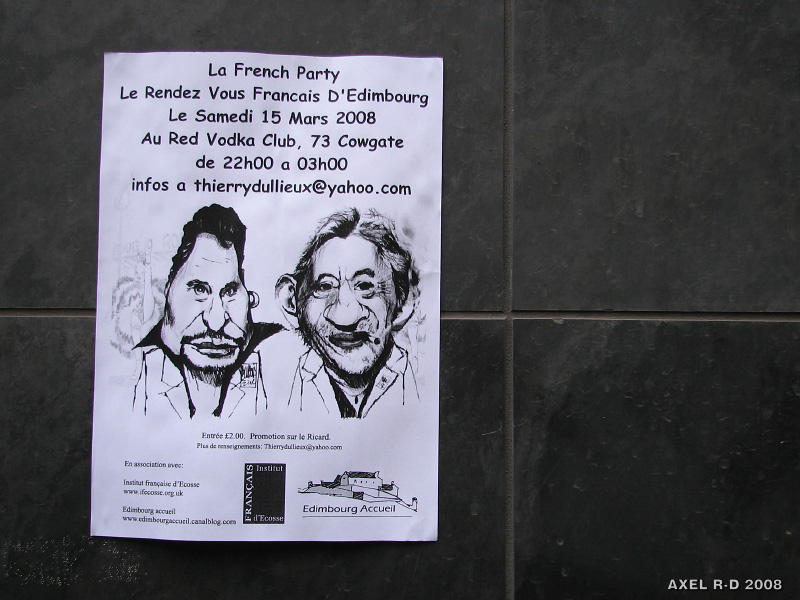 La French Party
Le Rendez Vous Francais D'Edimbourg
Le Samedi 15 Mars 2008
Au Red Vodka Club, 73 Cowgate
de 22h00 a 03h00
infos a thierrydullieux@yahoo.com
Entrée £2.00. Promotion sur le Ricard.
Plus de renseignements: Thierrydullieux@yahoo.com
En association avec:
Institut française d'Ecosse
www.ifecosse.org.uk
Edimbourg accueil
www.edimbourgaccueil.canalblog.com
FRANÇAIS
Institut
d'Ecosse
Edimbourg Accueil
AXEL R-D 2008